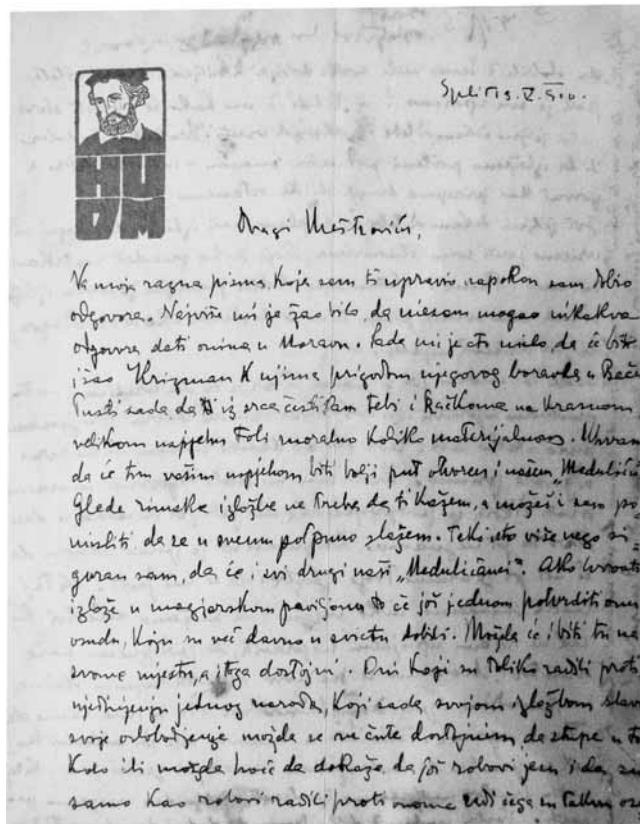 HU
DM
Split 19. X. 910.
Dragi Meštroviću,
Na moja razna pisma, koja sam ti upravio napokon sam dobio
odgovora. Najviše mi je žao bilo, da niesam mogao nikakva
odgovora dati onima u Moravu. Sada mi je eto milo, da će biti
išao Krizman k njima prigodom njegovog boravka u Beču
Pusti sada da ti iz srca čestitam tebi i Račkome na krasnom
velikom uspjehu toli moralno koliko materijalnom. Uhvam
da će tim vašim uspjehom biti bolji put otvoren i našem „Meduliću
Glede rimske izložbe ne treba da ti kažem, a možeš i sam po-
misliti da se u svemu potpuno slažem. Tako isto više nego si-
guran sam, da će i svi drugi naši „Medulićanci". Ako hrvati
izlože u magjarskom paviljonu to će još jednom potvrditi onu
osudu, koju su već davno u svietu dobili. Možda će i biti tu na
svome mjestu, a i toga dostojni. Oni koji su toliko radili proti
ujedinjenju jednog naroda, koji sada svojom izložbom slavi
svoje oslobodjenje možda se ne ćute dostojnim da stupe u to
Kolo ili možda hoće da dokažu da još robovi jesu i da su
samo kao robovi radili proti onome radi čega su